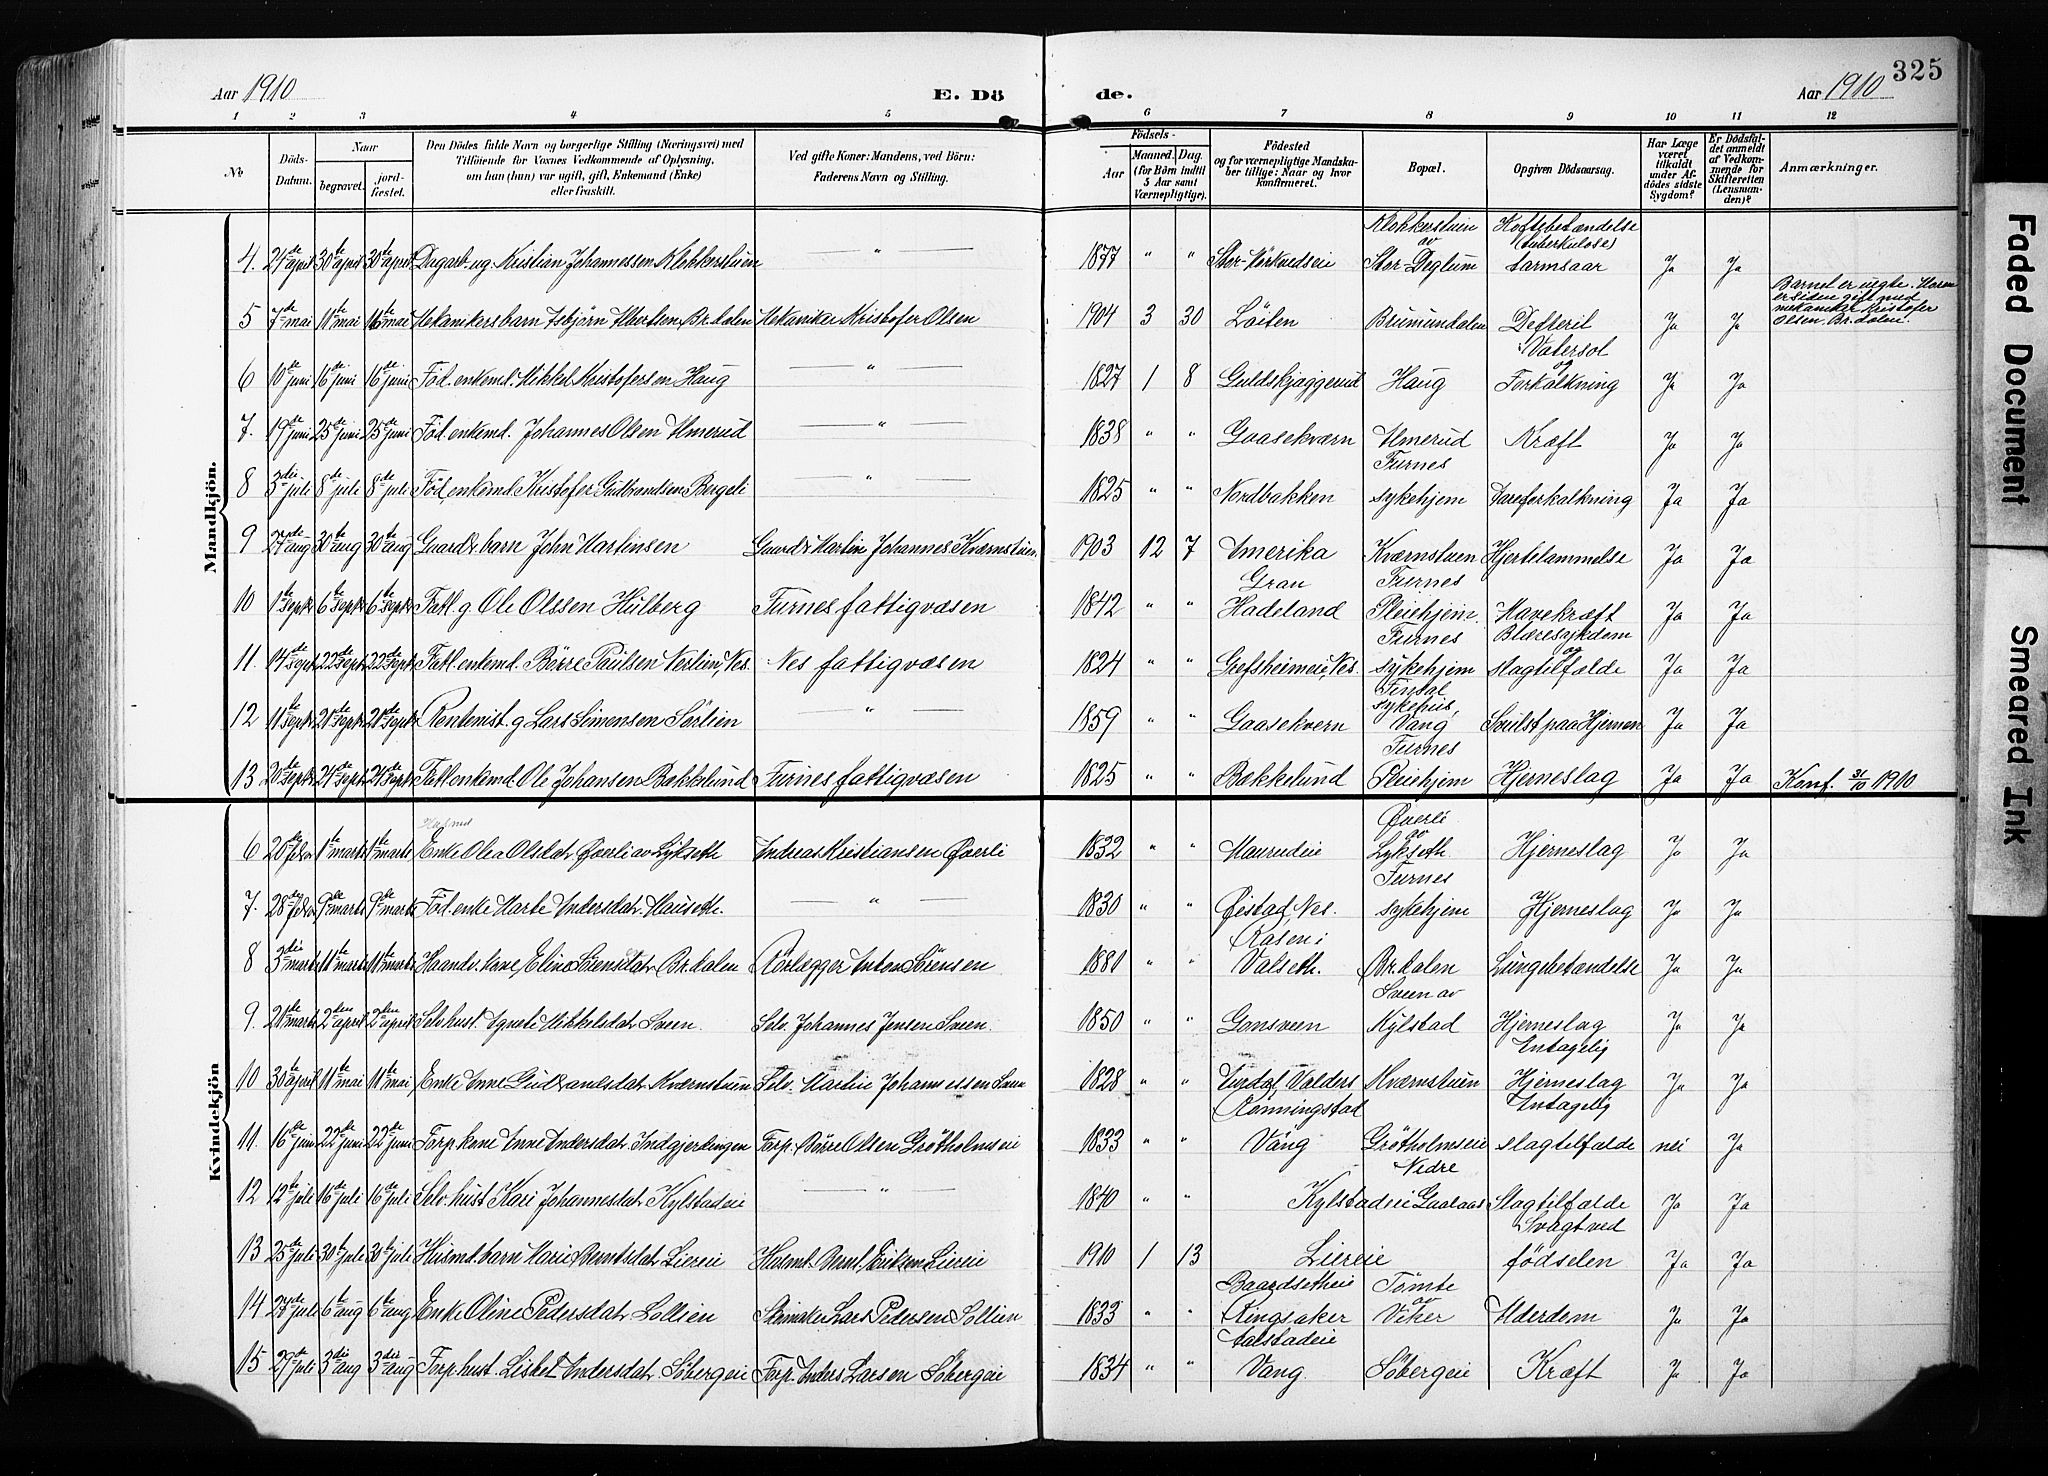 325
Aar 1910
E. Dö
de.
Aar 1910
1 2 3 4 5 6 7 8 9 10 11 12
No
Döds-Datum.
Naar
begravet.
jord-fæstet.
Den Dödes fulde Navn og borgerlige Stilling (Næringsvei) med
Tilföiende for Voxnes Vedkommende af Oplysning,
om han (hun) var ugift, gift, Enkemand (Enke)
eller fraskilt.
Ved gifte Koner: Mandens, ved Börn:
Faderens Navn og Stilling.
Födsels-
Aar
Maaned. Dag.
(for Börn indtil
5 Aar samt
Værnepligtige).
Födested
og for værnepligtige Mandska-
ber tillige: Naar og hvor
konfirmeret.
Bopæl.
Opgiven Dödsaarsag.
Har Læge
været
tilkaldt
under Af-
dödes sidste
Sygdom?
Er Dödsfal-
det anmeldt
af Vedkom-
mende for
Skifteretten
(Lensman-
den)?
Anmærkninger.
Mandkjön.
4. 24de april 30te april 30te april Dagarb. ug. Kristian Johannessen Klokkerstuen — " — 1877 " " Stor-Mörkvedeie Klokkerstuen av Stor-Deglum Hoftebetændelse (tuberkulose) tarmsaar Ja Ja
5 7de mai 11te mai 16te mai Mekanikers barn Asbjörn Albertsen Br.dalen Mekaniker Kristofer Olsen 1904 3 30 Löiten Brumundalen Defterit Ja Ja Barnet er uegte. Moren er siden gift med mekaniker Kristofer Olsen, Br.dalen.
6 10de juni 16te juni 16te juni Föd. enkemd. Mikkel Kristofersen Haug — " — 1827 1 8 Guldskjæggerud Haug Vatersot og Forkalkning Ja Ja
7. 19de juni 25de juni 25de juni Föd. enkemd. Johannes Olsen Almerud — " — 1838 " " Gaasekværn Almerud Kræft Ja Ja
8 3die juli 8de juli 8de juli Föd. enkemd. Kristofer Gudbrandsen Bergeli — " — 1825 " " Nordbakken Furnes sykehjem Aareforkalkning Ja Ja
9 27de aug 30te aug 30te aug Gaardr. barn John Martinsen Gaardr. Martin Johannes. Kværnstuen 1903 12 7 Amerika Kværnstuen Hjertelammelse Ja Ja
10 1ste sept. 6te sept. 6te sept. Fatl. g. Ole Olssen Hulberg Furnes fattigvæsen 1842 " " Gran Hadeland Furnes Pleiehjem. Mavekræft Ja Ja
11. 14de sept. 22de sept. 22de sept. Fatl. enkemd. Börre Paulsen Neslien, Nes. Nes fattigvæsen 1824 " " Gefsheimeie, Nes. Furnes sykehjem Blæresykdom og slagtilfælde Ja Ja
12 11te sept. 21de sept. 21de sept. Rentenist. g. Lars Simensen Sörlien — " — 1859 " " Gaasekvern sykehus, Vang Svulst paa Hjernen Ja Ja
13 20de sept. 24de sept. 24de sept. Fatl. enkemd Ole Johansen Bækkelund Furnes fattigvæsen 1825 " " Bækkelund Furnes Pleiehjem Hjerneslag Ja Ja Konf. 31/10 1910
Kvindekjön
6 20de febr. 1ste marts 1ste marts Husmd Enke Olea Olsdatr. Överli av Lykseth Andreas Kristiansen Överli 1832 " " Maurudeie Överli av Lykseth. Hjerneslag Ja Ja
7. 28de febr. 9de marts 9de marts Föd. enke Marte Andersdatr. Hauseth. — " — 1830 " " Öistad, Nes. Furnes sykehjem Hjerneslag Ja Ja
8 3die marts 11te marts 11te marts Haandv. kone, Eline Sörensdatr. Br.dalen Rörlægger Anton Sörensen 1881 " " Rasen i Valseth. Br.dalen Lungebetændelse Ja Ja
9. 21de marts 2den april 2den april Selv. hust. Agnete Mikkelsdatr. Sveen. Selv. Johannes Jensen Sveen. 1850 " " Gonsveen Sveen av Kylstad Hjerneslag Ja Ja
10 30te april 11te mai 11te mai Enke Anne Gudbrandsdatr. Kværnstuen Selv. Martin Johannessen Sveen 1828 " " Valders Kværnstuen Antagelig Hjerneslag Ja Ja
11. 16de juni 22de juni 22de juni Forp. kone Anne Andersdatr. Indgjerdingen Forp. Börre Olsen Grötholmseie 1833 " " Rönningstad Vang Grötholmseie Antagelig slagtilfælde nei Ja
12 12te juli 16de juli 16de juli Selv. hust. Kari Johannesdatr. Kylstadeie — " — 1840 " " Kylstadeie Nedre Gaalaas Slagtilfælde Ja Ja
13 25de juli 30te juli 30te juli Husmd. barn Marie Berntsdatr. Liereie Husmd. Bernt Eriksen Liereie 1910 1 13 Liereie Svagt ved födselen Ja Ja
14 27de juli 6te aug 6te aug Enke Oline Pedersdatr. Sollien Skomaker Lars Pedersen Sollien 1833 " " Baardsetheie Ringsaker Tömte av Viker Alderdom Ja Ja
15 27de juli 3die aug 3die aug Forp. hust. Lisbet Andersdatr. Söbergeie Forp. Anders Larsen Söbergeie 1834 " " Aalstadeie Vang. Söbergeie Kræft Ja Ja
Faded Document
Smeared Ink